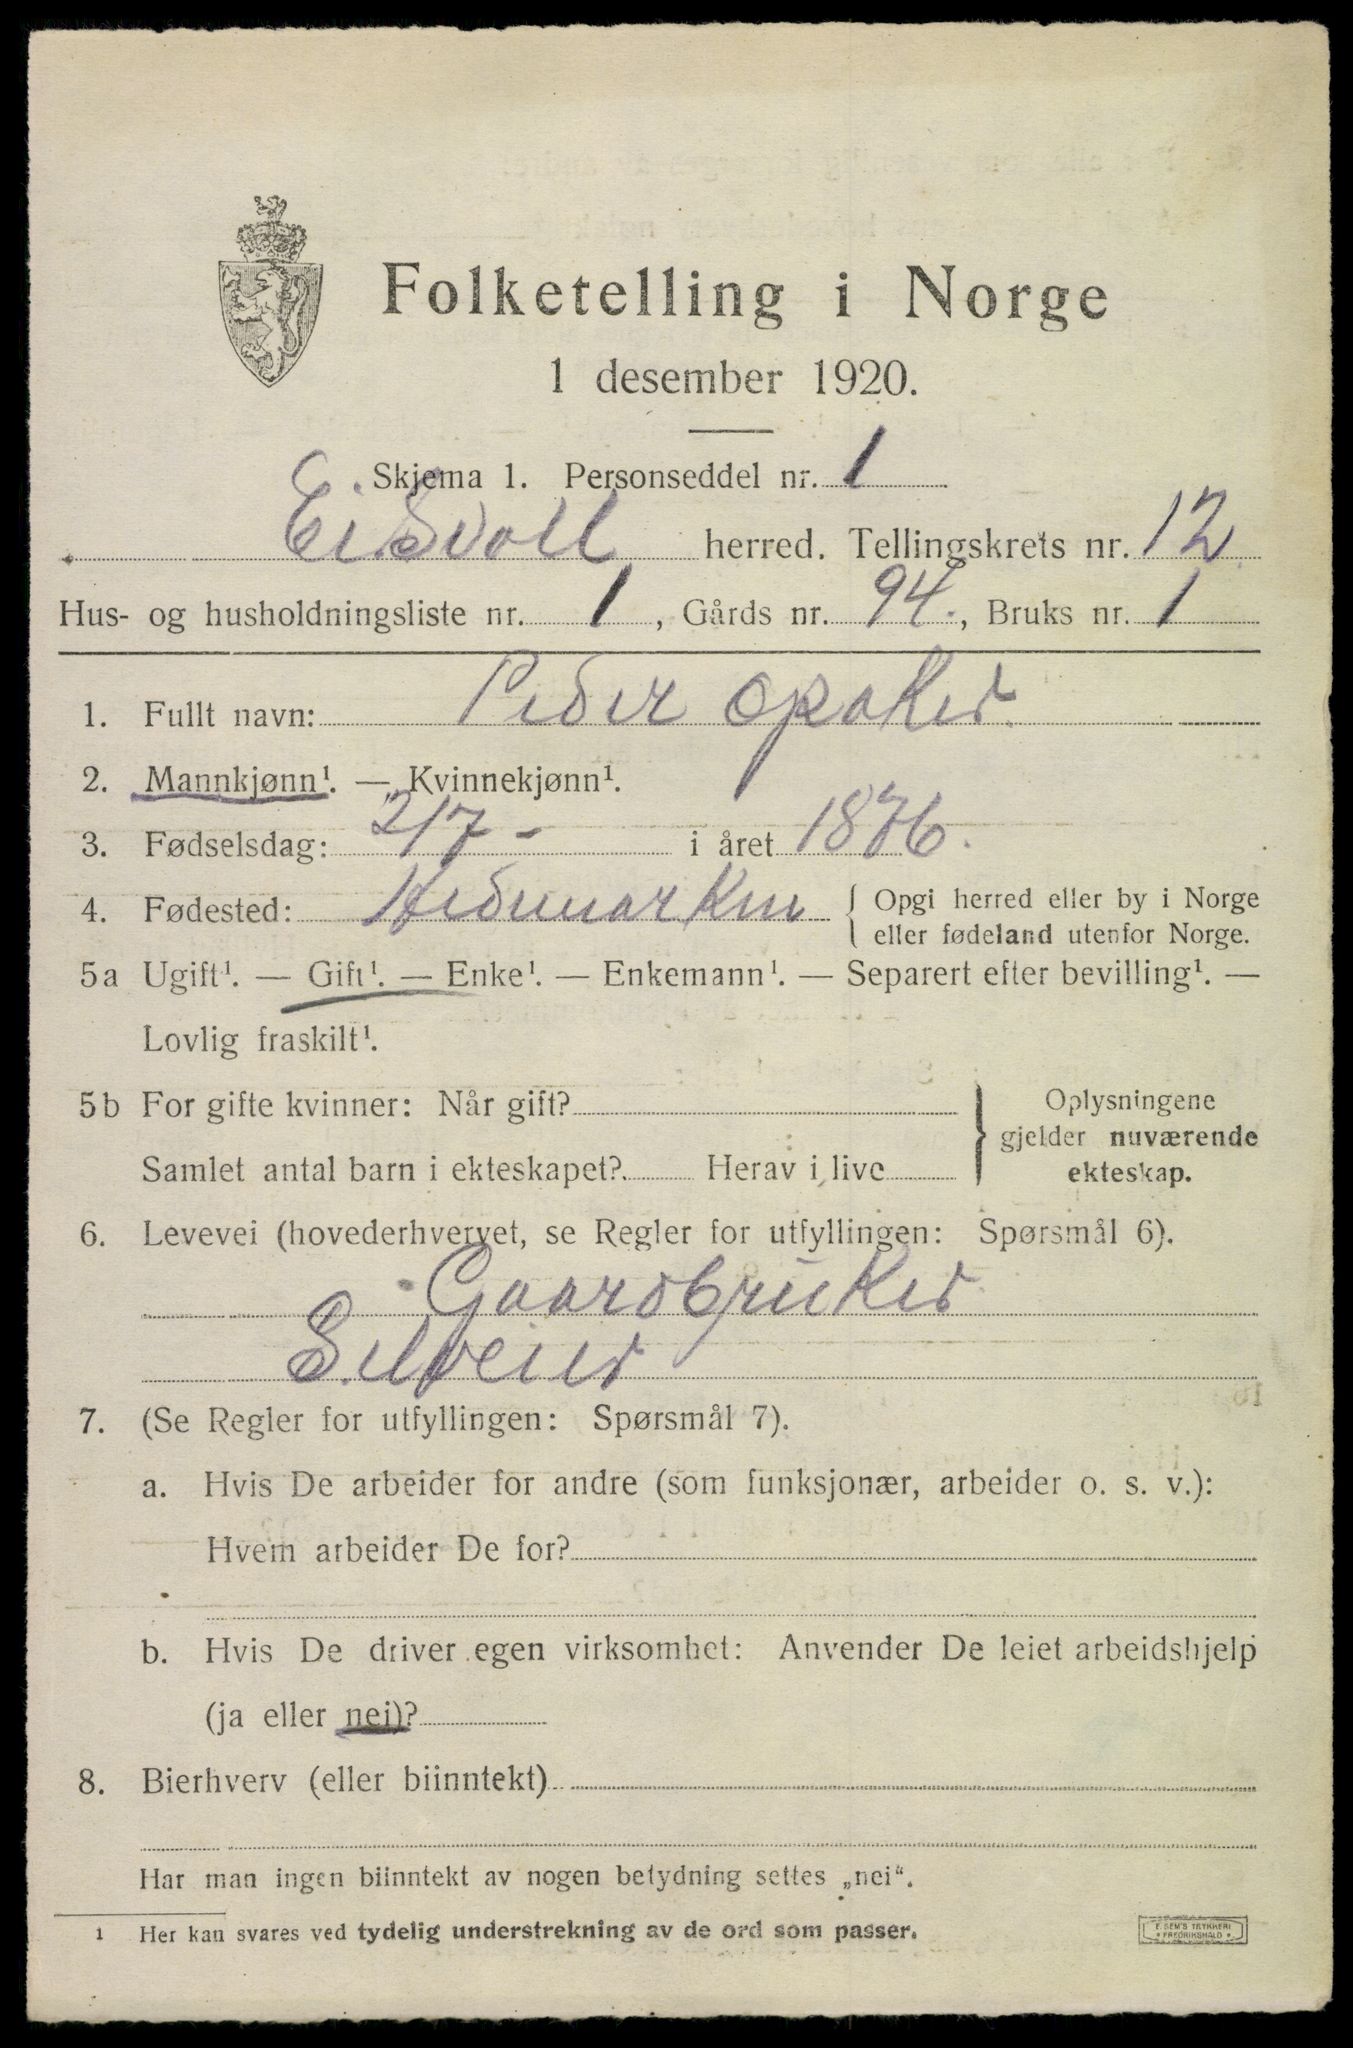 Folketelling i Norge
1 desember 1920.
Skjema 1. Personseddel nr. 1
Eidsvoll herred. Tellingskrets nr. 12
Hus- og husholdningsliste nr. 1, Gårds nr. 94., Bruks nr. 1
1. Fullt navn: Peder Opaker
2. Mannkjønn¹. — Kvinnekjønn¹.
3. Fødselsdag: 2/7 - i året 1876.
4. Fødested: Hedmarken { Opgi herred eller by i Norge
eller fødeland utenfor Norge.
5a Ugift¹. — Gift¹. — Enke¹. — Enkemann¹. — Separert efter bevilling¹. —
Lovlig fraskilt¹.
5b For gifte kvinner: Når gift?
Samlet antal barn i ekteskapet? Herav i live
} Oplysningene
gjelder nuværende
ekteskap.
6. Levevei (hovederhvervet, se Regler for utfyllingen: Spørsmål 6).
Gaardbruker
Selveier
7. (Se Regler for utfyllingen: Spørsmål 7).
a. Hvis De arbeider for andre (som funksjonær, arbeider o. s. v.):
Hvem arbeider De for?
b. Hvis De driver egen virksomhet: Anvender De leiet arbeidshjelp
(ja eller nei)?
8. Bierhverv (eller biinntekt)
Har man ingen biinntekt av nogen betydning settes „nei“.
1 Her kan svares ved tydelig understrekning av de ord som passer.
E. SEM'S TRYKKERI
FREDRIKSHALD